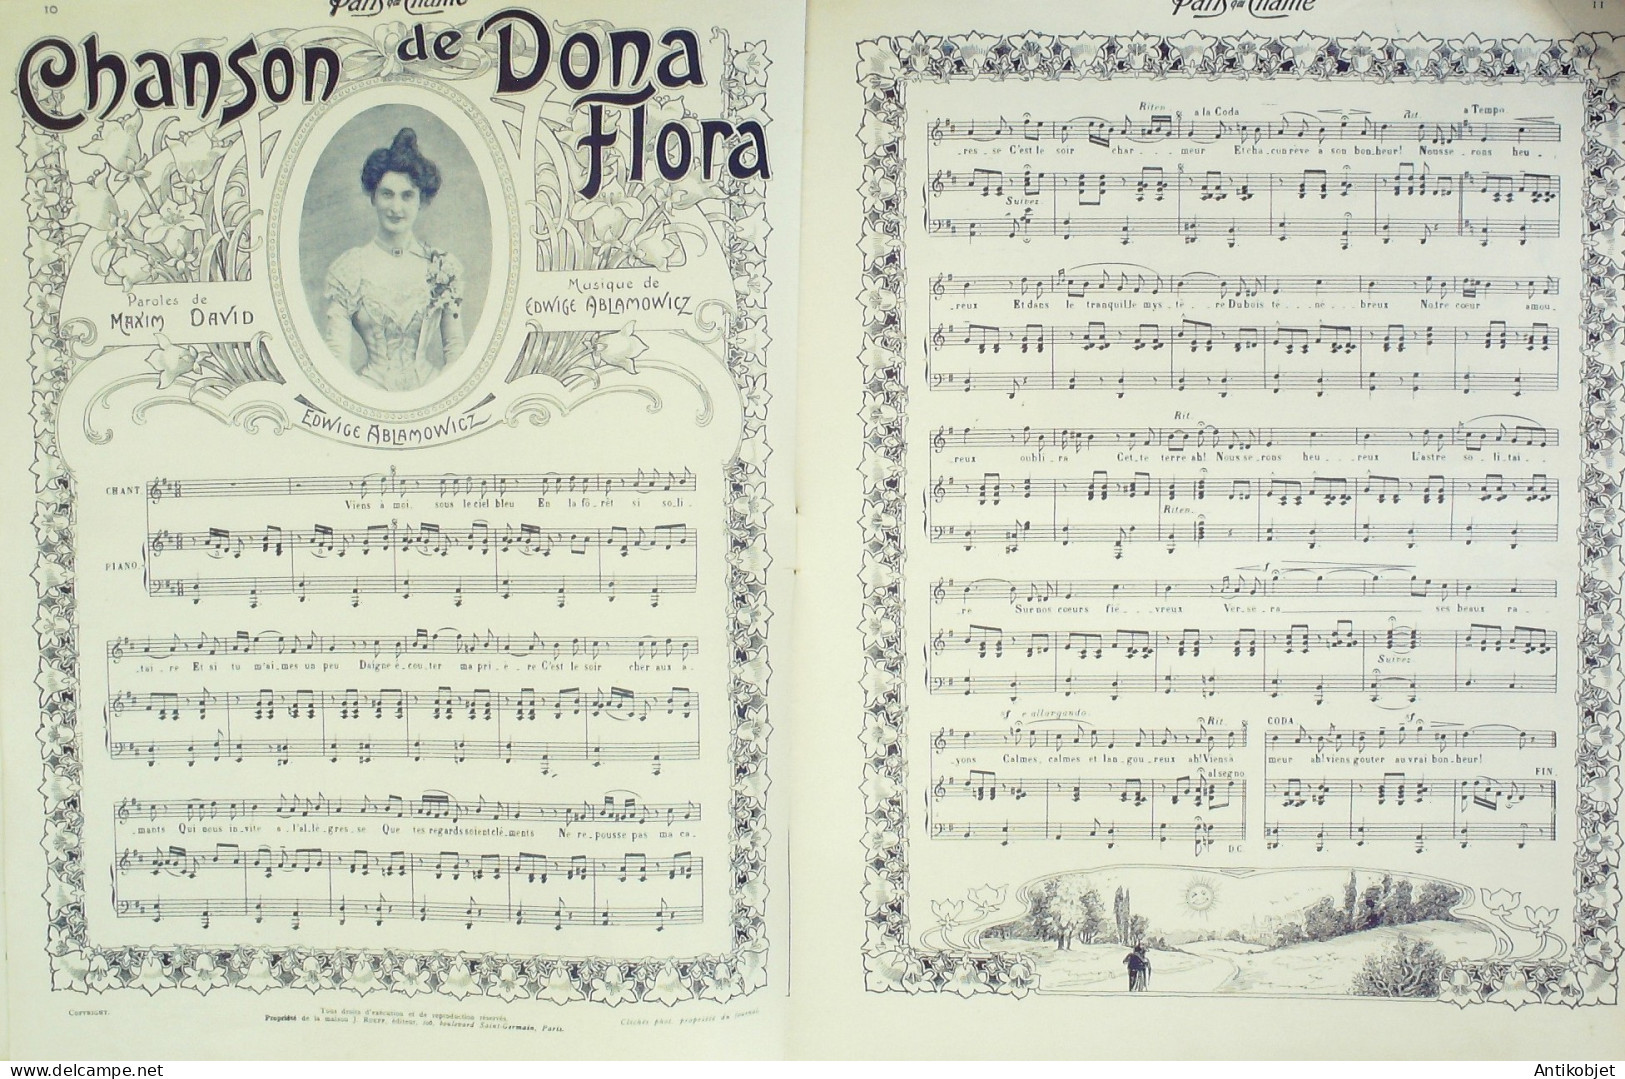 10
Paris qui Chante
Chanson de Dona Flora
Paroles de
MAXIM DAVID
Musique de
EDWIGE ABLAMOWICZ
EDWIGE ABLAMOWICZ
CHANT
Viens à moi, sous le ciel bleu En la fô_rêt si so_li_
PIANO.
_tai__re Et si tu m'ai_mes un peu Daigne é_cou_ter ma pri_è_re C'est le soir cher aux a_
_mants Qui nous in_vite a_l'al_lé_gres_se Que tes regards soient clé_ments Ne re_pousse pas ma ca_
COPYRIGHT.
Tous droits d'exécution et de reproduction réservés.
Propriété de la maison J. RUEFF, éditeur, 106, boulevard Saint-Germain, Paris.
Clichés phot. propriété du journal
Paris qui Chante
11
Riten. a la Coda Rit. a Tempo
_res_se C'est le soir char____meur Et chacun rêve à son bonheur! Nous se_rons heu_
Suivez.
_reux Et dans le tranquille mys_tè__re Du bois té__né___breux Notre cœur amou_
Rit.
_reux oubli_ra Cet_te terre ah! Nous se_rons heu__reux L'astre so_li_tai_
Riten.
f
_re Sur nos cœurs fié___vreux Ver_se_ra___ ses beaux ra_
Suivez
sf e allargando. Rit. CODA sf
_yons Calmes, calmes et lan_gou_reux ah! Viens à
meur ah! viens gouter au vrai bon_heur!
al segno
FIN.
D.C.
Antikobjet